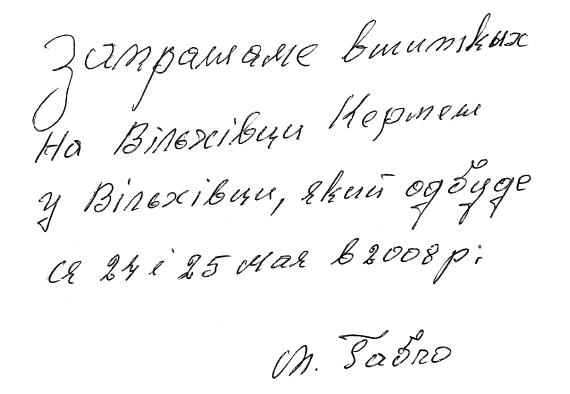 Запрашаме вшиткых
на Вільхівци Кермеш
у Вільхівци, який одбуде
ся 24 і 25 мая в 2008 р.
М. Габло